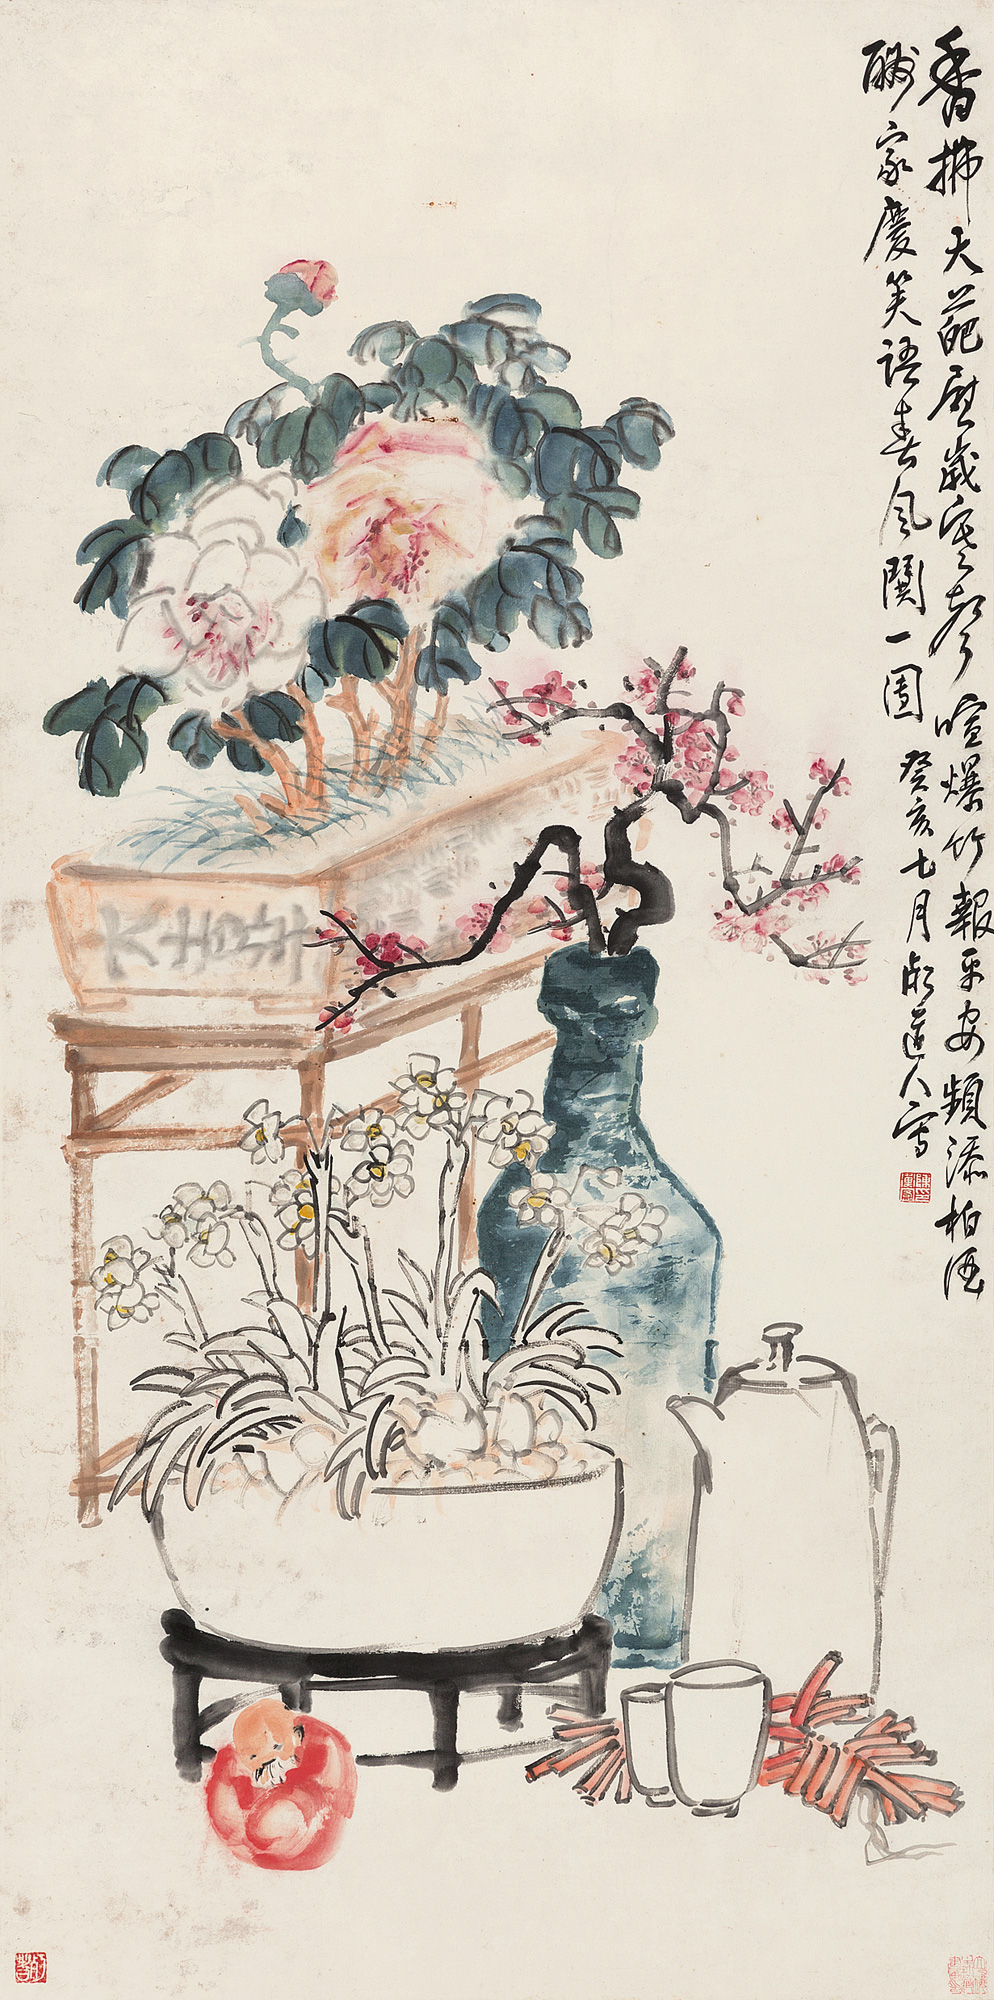 香拂天葩慰歲寒聲喧爆竹報平安頻添柏酒
酬家慶笑語春風鬨一團
癸亥七月師道人寫
大吉羊